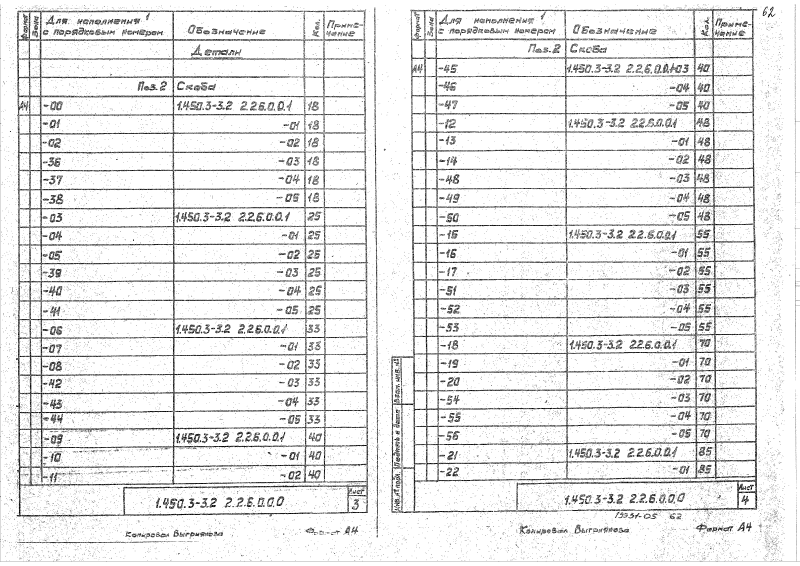 62
Формат Зона Для исполнения с порядковым номером Обозначение Кол. Приме-чание
Детали
Поз.2 Скоба
А4 -00 1.450.3-3.2 2.2.6.0.0.1 18
-01 -01 18
-02 -02 18
-36 -03 18
-37 -04 18
-38 -05 18
-03 1.450.3-3.2 2.2.6.0.0.1 25
-04 -01 25
-05 -02 25
-39 -03 25
-40 -04 25
-41 -05 25
-06 1.450.3-3.2 2.2.6.0.0.1 33
-07 -01 33
-08 -02 33
-42 -03 33
-43 -04 33
-44 -05 33
-09 1.450.3-3.2 2.2.6.0.0.1 40
-10 -01 40
-11 -02 40
1.450.3-3.2 2.2.6.0.0.0 Лист 3
Копировал Выгриянова Формат А4
Формат Зона Для исполнения с порядковым номером Обозначение Кол. Приме-чание
Поз.2 Скоба
А4 -45 1.450.3-3.2 2.2.6.0.0.1-03 40
-46 -04 40
-47 -05 40
-12 1.450.3-3.2 2.2.6.0.0.1 48
-13 -01 48
-14 -02 48
-48 -03 48
-49 -04 48
-50 -05 48
-15 1.450.3-3.2 2.2.6.0.0.1 55
-16 -01 55
-17 -02 55
-51 -03 55
-52 -04 55
-53 -05 55
-18 1.450.3-3.2 2.2.6.0.0.1 70
-19 -01 70
-20 -02 70
-54 -03 70
-55 -04 70
-56 -05 70
-21 1.450.3-3.2 2.2.6.0.0.1 85
-22 -01 85
Инв.№ подл. Подпись и дата Взам. инв. №
1.450.3-3.2 2.2.6.0.0.0 Лист 4
62
Копировал Формат А4